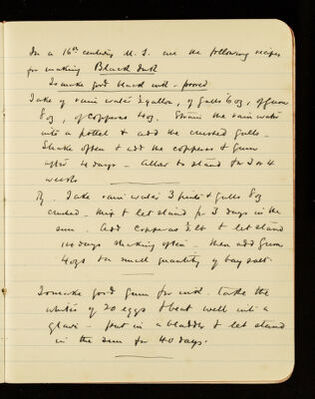 In a 16th century M.S. are the following recipes
for making Black Ink
To make good black ink - proved
Take of rain water 3 gallon, of galls 16 oz, of gum
8 oz, of copperas 4 oz. Strain the rain water
into a pottel & add the crushed galls.
Shake often & add the copperas & gum
after 4 days - Allow to stand for 3 or 4
weeks
Take rain water 3 pints & galls 8 oz
crushed - mix & let stand for 3 days in the
sun. Add copperas ½ lb & let stand
days shaking often. Then add gum
4 ozs & a small quantity of bay salt.
To make good gum for ink. take the
whites of 20 eggs & beat well into a
- put in a bladder & let stand
in the sun for 40 days.